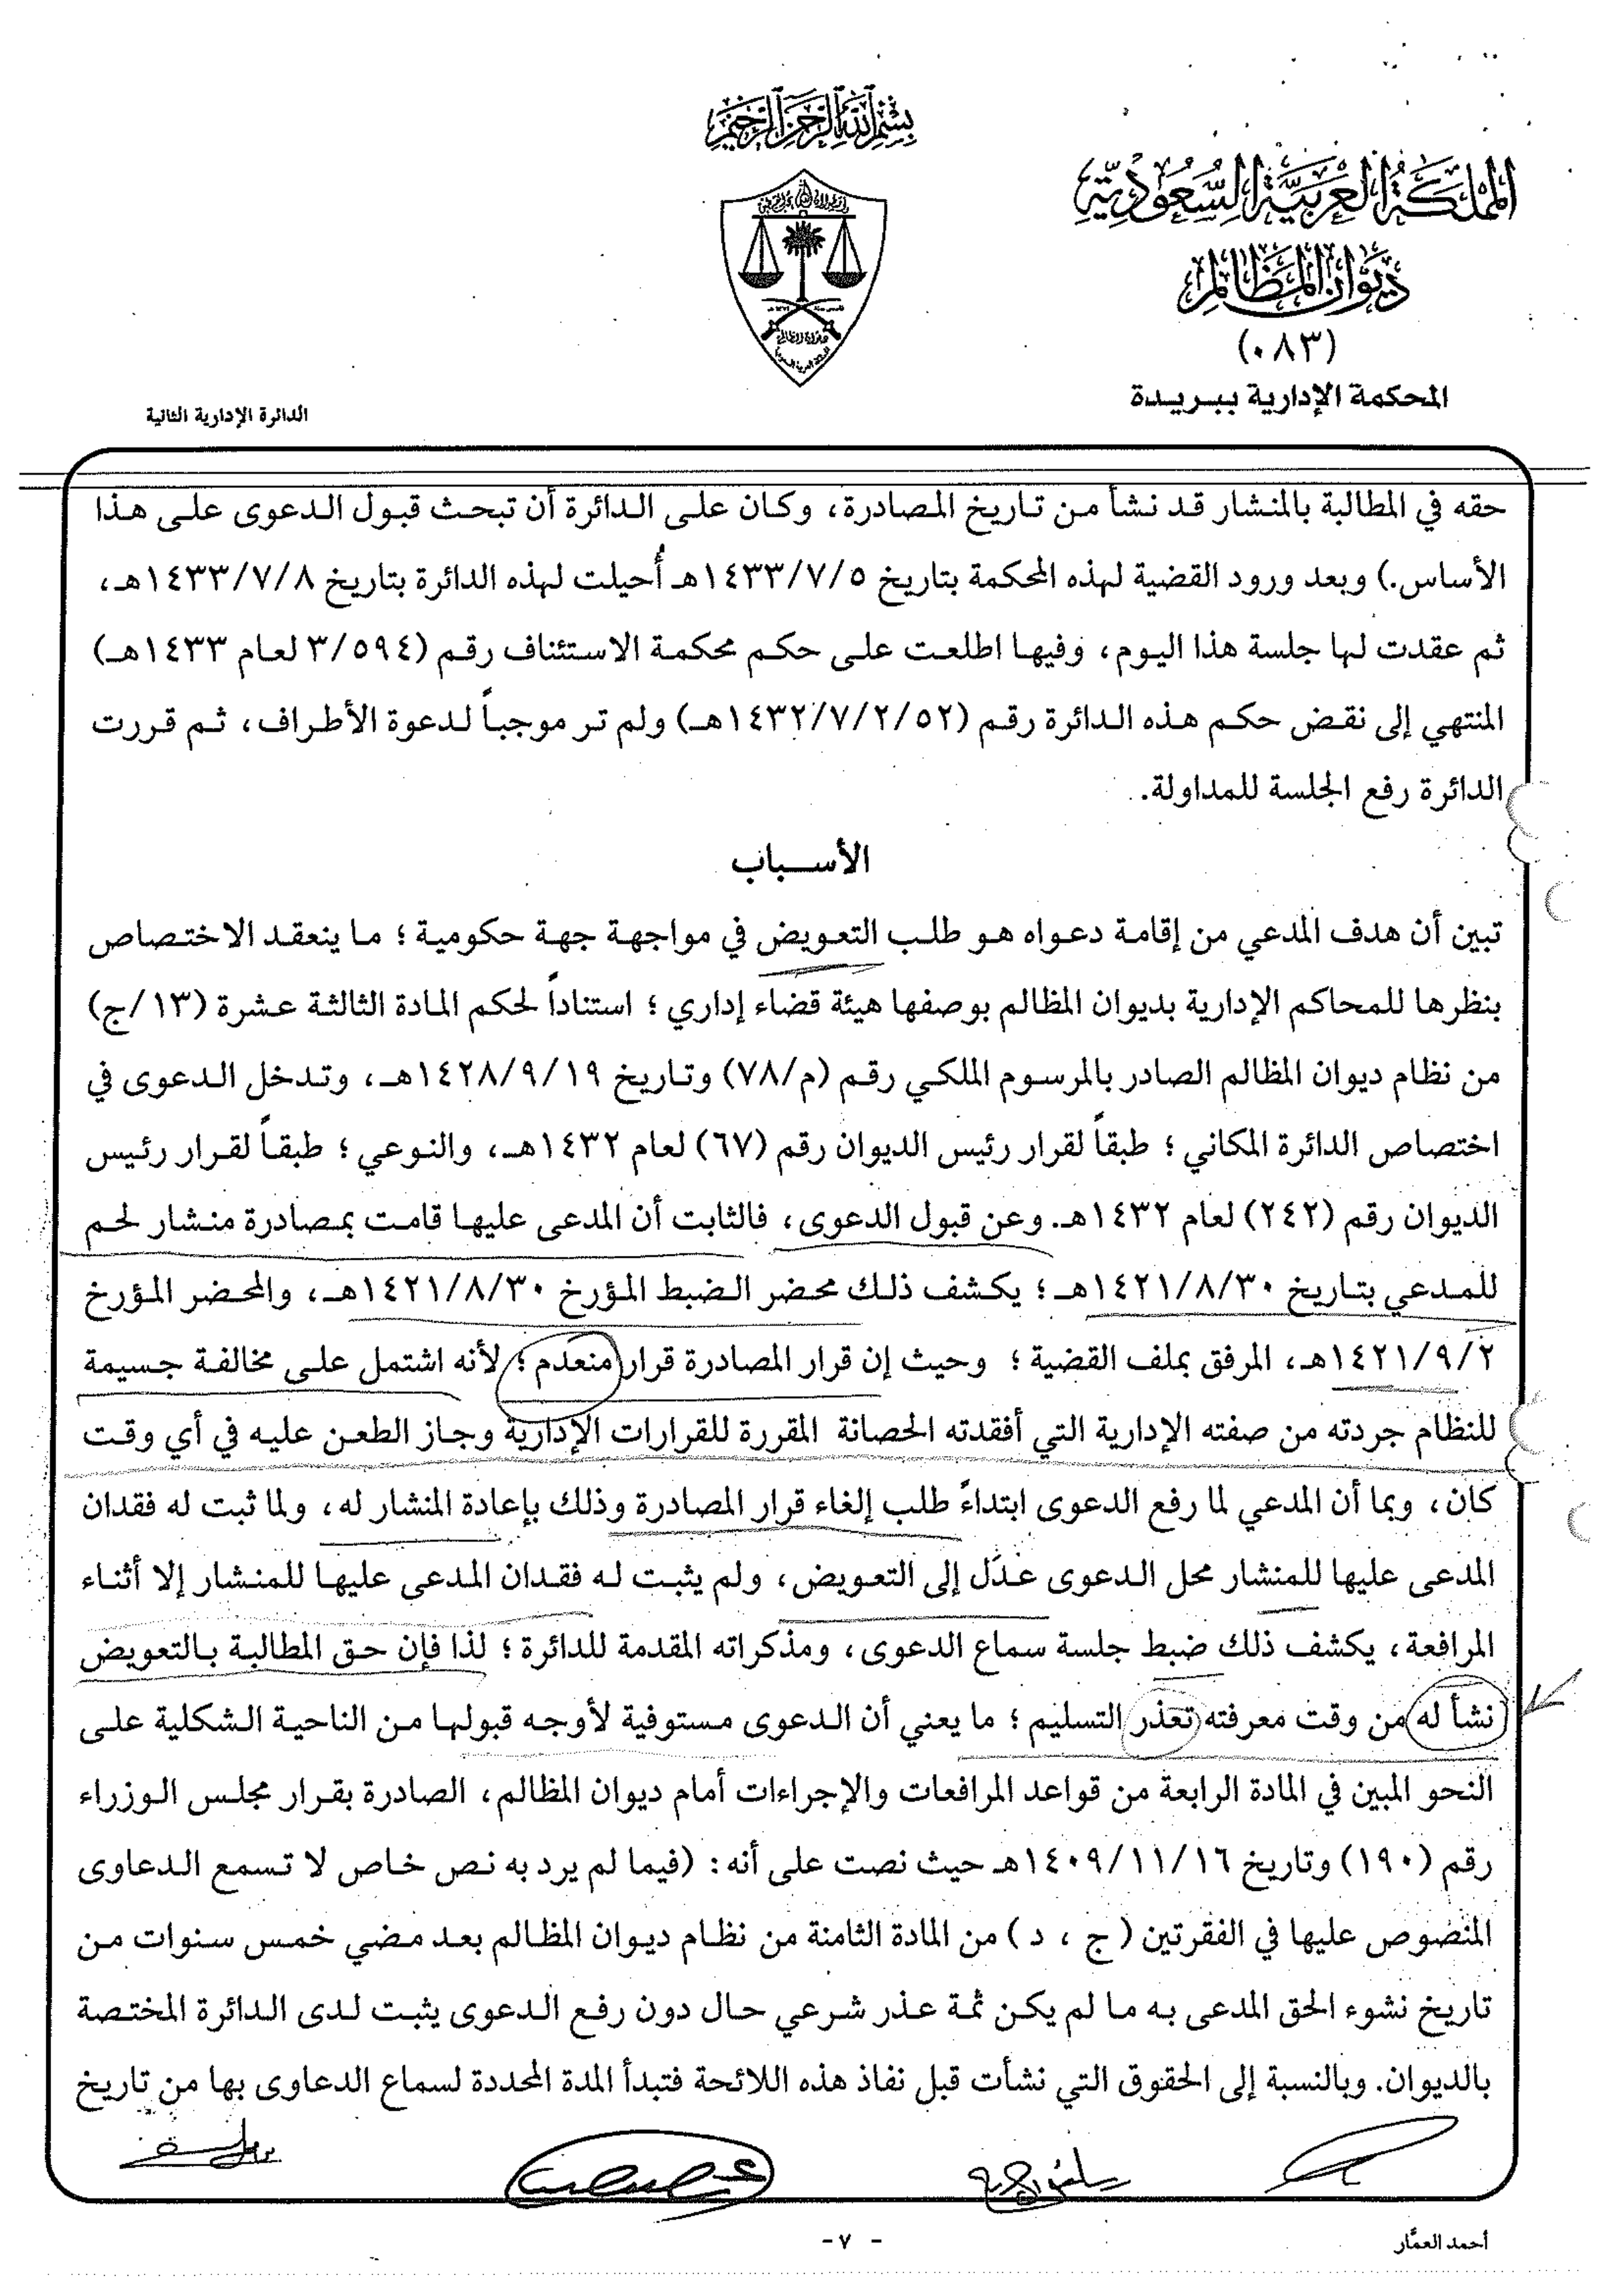 بسم الله الرحمن الرحيم
المملكة العربية السعودية
ديوان المظالم
(٠٨٣)
المحكمة الإدارية ببريدة
الدائرة الإدارية الثانية
حقه في المطالبة بالمنشار قد نشأ من تاريخ المصادرة، وكان على الدائرة أن تبحث قبول الدعوى على هذا
الأساس.) وبعد ورود القضية لهذه المحكمة بتاريخ ١٤٣٣/٧/٥هـ أُحيلت لهذه الدائرة بتاريخ ١٤٣٣/٧/٨هـ،
ثم عقدت لها جلسة هذا اليوم، وفيها اطلعت على حكم محكمة الاستئناف رقم (٣/٥٩٤ لعام ١٤٣٣هـ)
المنتهي إلى نقض حكم هذه الدائرة رقم (١٤٣٢/٧/٢/٥٢هـ) ولم تر موجباً لدعوة الأطراف، ثم قررت
الدائرة رفع الجلسة للمداولة.
الأسباب
تبين أن هدف المدعي من إقامة دعواه هو طلب التعويض في مواجهة جهة حكومية؛ ما ينعقد الاختصاص
بنظرها للمحاكم الإدارية بديوان المظالم بوصفها هيئة قضاء إداري؛ استناداً لحكم المادة الثالثة عشرة (١٣/ج)
من نظام ديوان المظالم الصادر بالمرسوم الملكي رقم (م/٧٨) وتاريخ ١٤٢٨/٩/١٩هـ، وتدخل الدعوى في
اختصاص الدائرة المكاني؛ طبقاً لقرار رئيس الديوان رقم (٦٧) لعام ١٤٣٢هـ، والنوعي؛ طبقاً لقرار رئيس
الديوان رقم (٢٤٢) لعام ١٤٣٢هـ. وعن قبول الدعوى، فالثابت أن المدعى عليها قامت بمصادرة منشار لحم
للمدعي بتاريخ ١٤٢١/٨/٣٠هـ؛ يكشف ذلك محضر الضبط المؤرخ ١٤٢١/٨/٣٠هـ، والمحضر المؤرخ
١٤٢١/٩/٢هـ، المرفق بملف القضية؛ وحيث إن قرار المصادرة قرار منعدم؛ لأنه اشتمل على مخالفة جسيمة
للنظام جردته من صفته الإدارية التي أفقدته الحصانة المقررة للقرارات الإدارية وجاز الطعن عليه في أي وقت
كان، وبما أن المدعي لما رفع الدعوى ابتداءً طلب إلغاء قرار المصادرة وذلك بإعادة المنشار له، ولما ثبت له فقدان
المدعى عليها للمنشار محل الدعوى عدَل إلى التعويض، ولم يثبت له فقدان المدعى عليها للمنشار إلا أثناء
المرافعة، يكشف ذلك ضبط جلسة سماع الدعوى، ومذكراته المقدمة للدائرة؛ لذا فإن حق المطالبة بالتعويض
نشأ له من وقت معرفته تعذر التسليم؛ ما يعني أن الدعوى مستوفية لأوجه قبولها من الناحية الشكلية على
النحو المبين في المادة الرابعة من قواعد المرافعات والإجراءات أمام ديوان المظالم، الصادرة بقرار مجلس الوزراء
رقم (١٩٠) وتاريخ ١٤٠٩/١١/١٦هـ حيث نصت على أنه: (فيما لم يرد به نص خاص لا تسمع الدعاوى
المنصوص عليها في الفقرتين (ج ، د) من المادة الثامنة من نظام ديوان المظالم بعد مضي خمس سنوات من
تاريخ نشوء الحق المدعى به ما لم يكن ثمة عذر شرعي حال دون رفع الدعوى يثبت لدى الدائرة المختصة
بالديوان. وبالنسبة إلى الحقوق التي نشأت قبل نفاذ هذه اللائحة فتبدأ المدة المحددة لسماع الدعاوى بها من تاريخ
- ٧ -
أحمد العمَّار